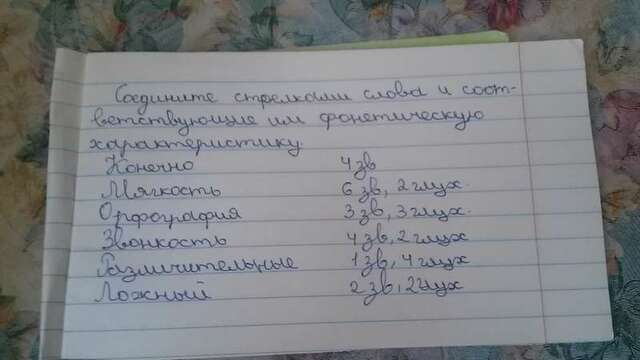 Соедините стрелками слова и соот-
ветствующие им фонетическую
характеристику.
Конечно 4 зв
Мягкость 6 зв, 2 глух.
Орфография 3 зв, 3 глух.
Звонкость 4 зв, 2 глух
Различительные 1 зв, 4 глух
Ложный 2 зв, 2 глух